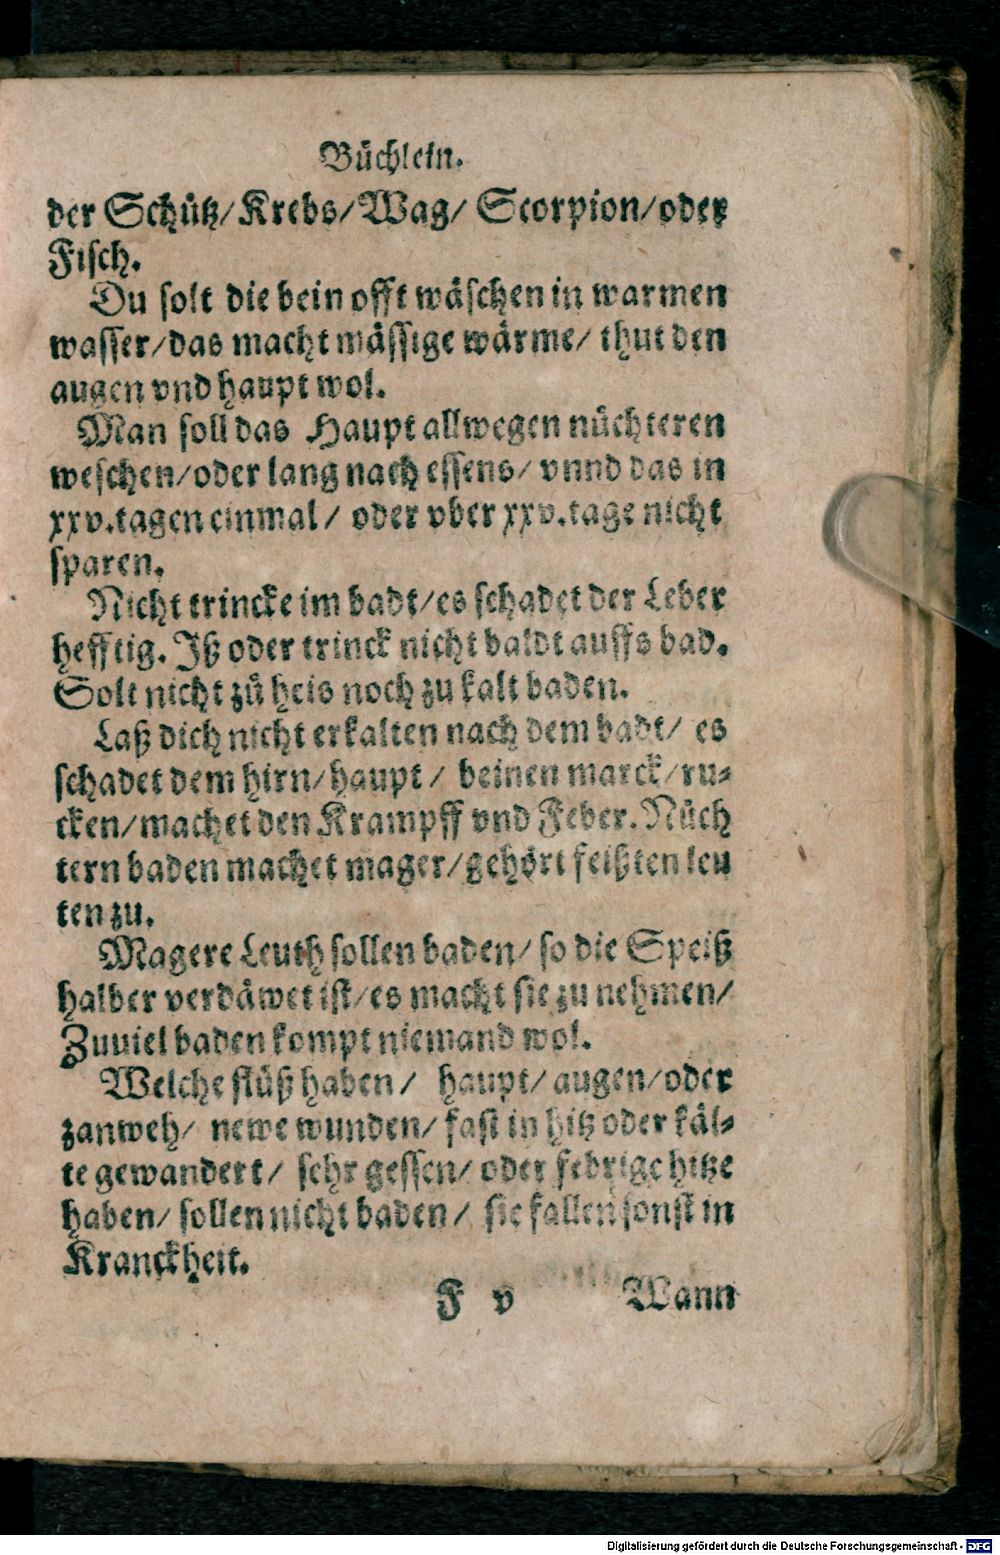 Büchlein.
der Schütz/Krebs/Wag/ Scorpion/oder
Fisch.
Du solt die bein offt wäschen in warmen
wasser/das macht mässige wärme/ thut den
augen vnd haupt wol.
Man soll das Haupt allwegen nüchteren
weschen/oder lang nach essens/ vnnd das in
xxv.tagen einmal/ oder vber xxv.tage nicht
sparen.
Nicht trincke im badt/es schadet der Leber
hefftig. Iß oder trinck nicht baldt auffs bad.
Solt nicht zů heis noch zu kalt baden.
Laß dich nicht erkalten nach dem badt/ es
schadet dem hirn/haupt/ beinen marck/ru-
cken/machet den Krampff vnd Feber. Nüch
tern baden machet mager/gehört feißten leu
ten zu.
Magere Leuth sollen baden/ so die Speiß
halber verdäwet ist/es macht sie zu nehmen/
Zuuiel baden kompt niemand wol.
Welche flüß haben/ haupt/augen/oder
zanweh/ newe wunden/ fast in hitz oder käl-
te gewandert/ sehr gessen/ oder febrige hitze
haben/ sollen nicht baden/ sie fallen sonst in
Kranckheit.
F v Wann
Digitalisierung gefördert durch die Deutsche Forschungsgemeinschaft - DFG